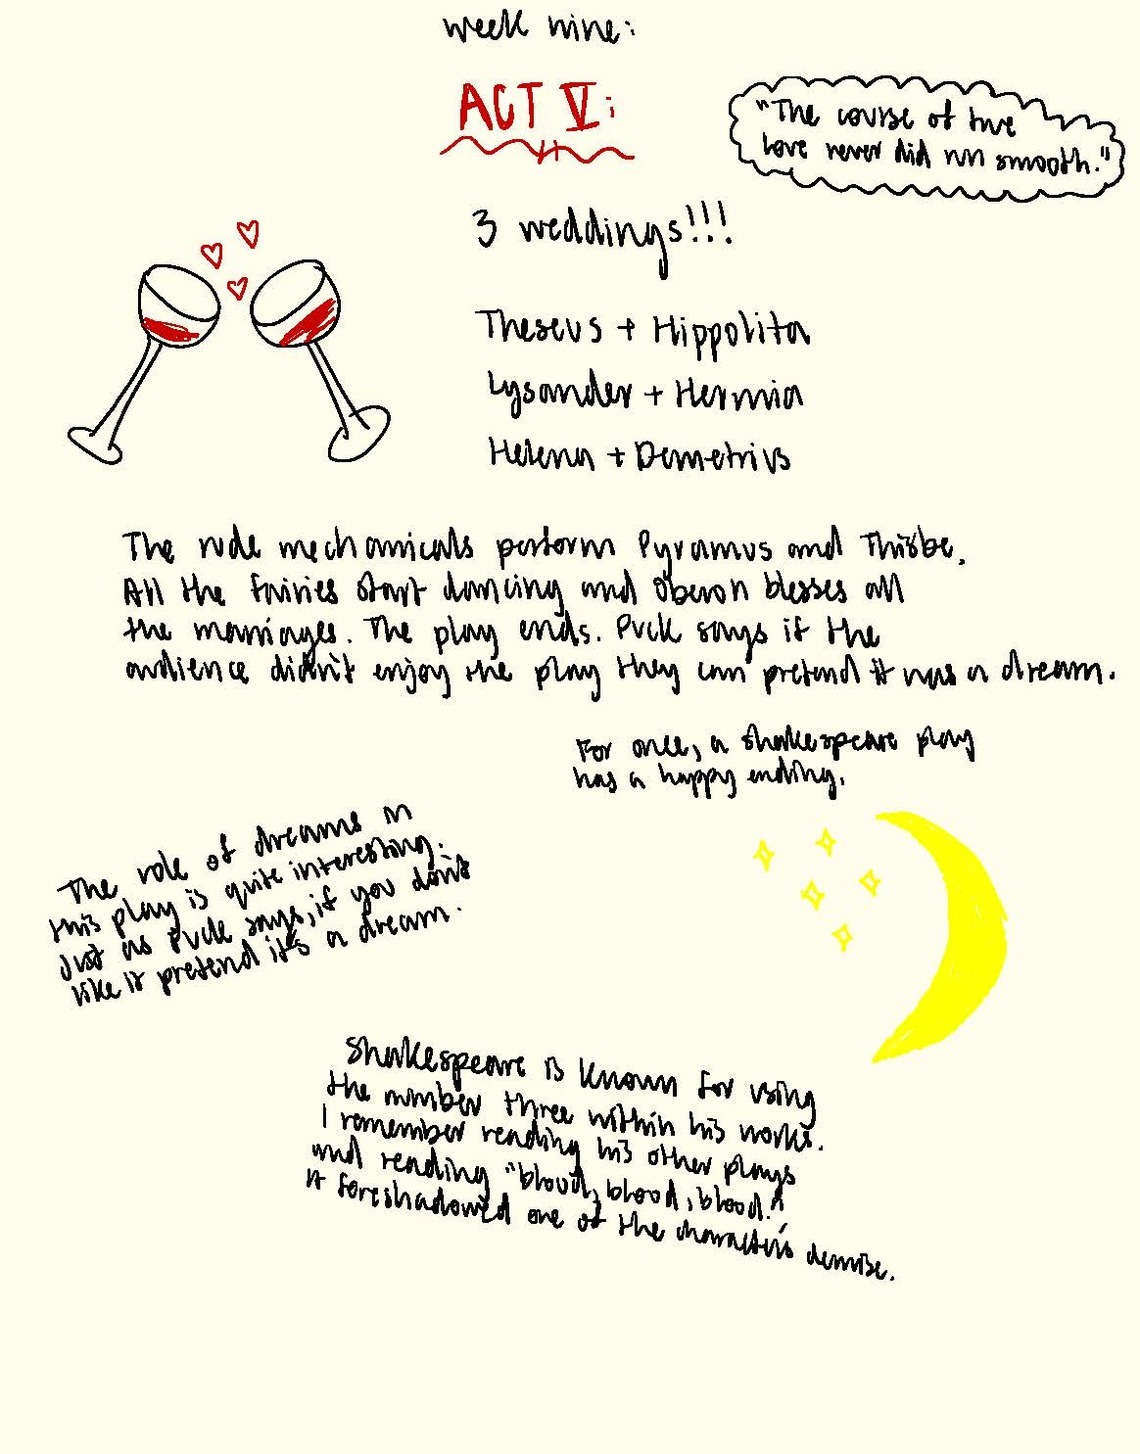 week nine:
ACT V:
"The course of true
love never did run smooth."
3 weddings!!!
Theseus + Hippolita
Lysander + Hermia
Helena + Demetrius
The rude mechanicals perform Pyramus and Thisbe.
All the fairies start dancing and Oberon blesses all
the marriages. The play ends. Puck says if the
audience didn't enjoy the play they can pretend it was a dream.
For once, a shakespeare play
has a happy ending.
The role of dreams in
this play is quite interesting.
Just as Puck says, if you don't
like it pretend it's a dream.
Shakespeare is known for using
the number three within his works.
I remember reading his other plays
and reading "blood, blood, blood."
It foreshadowed one of the character's demise.